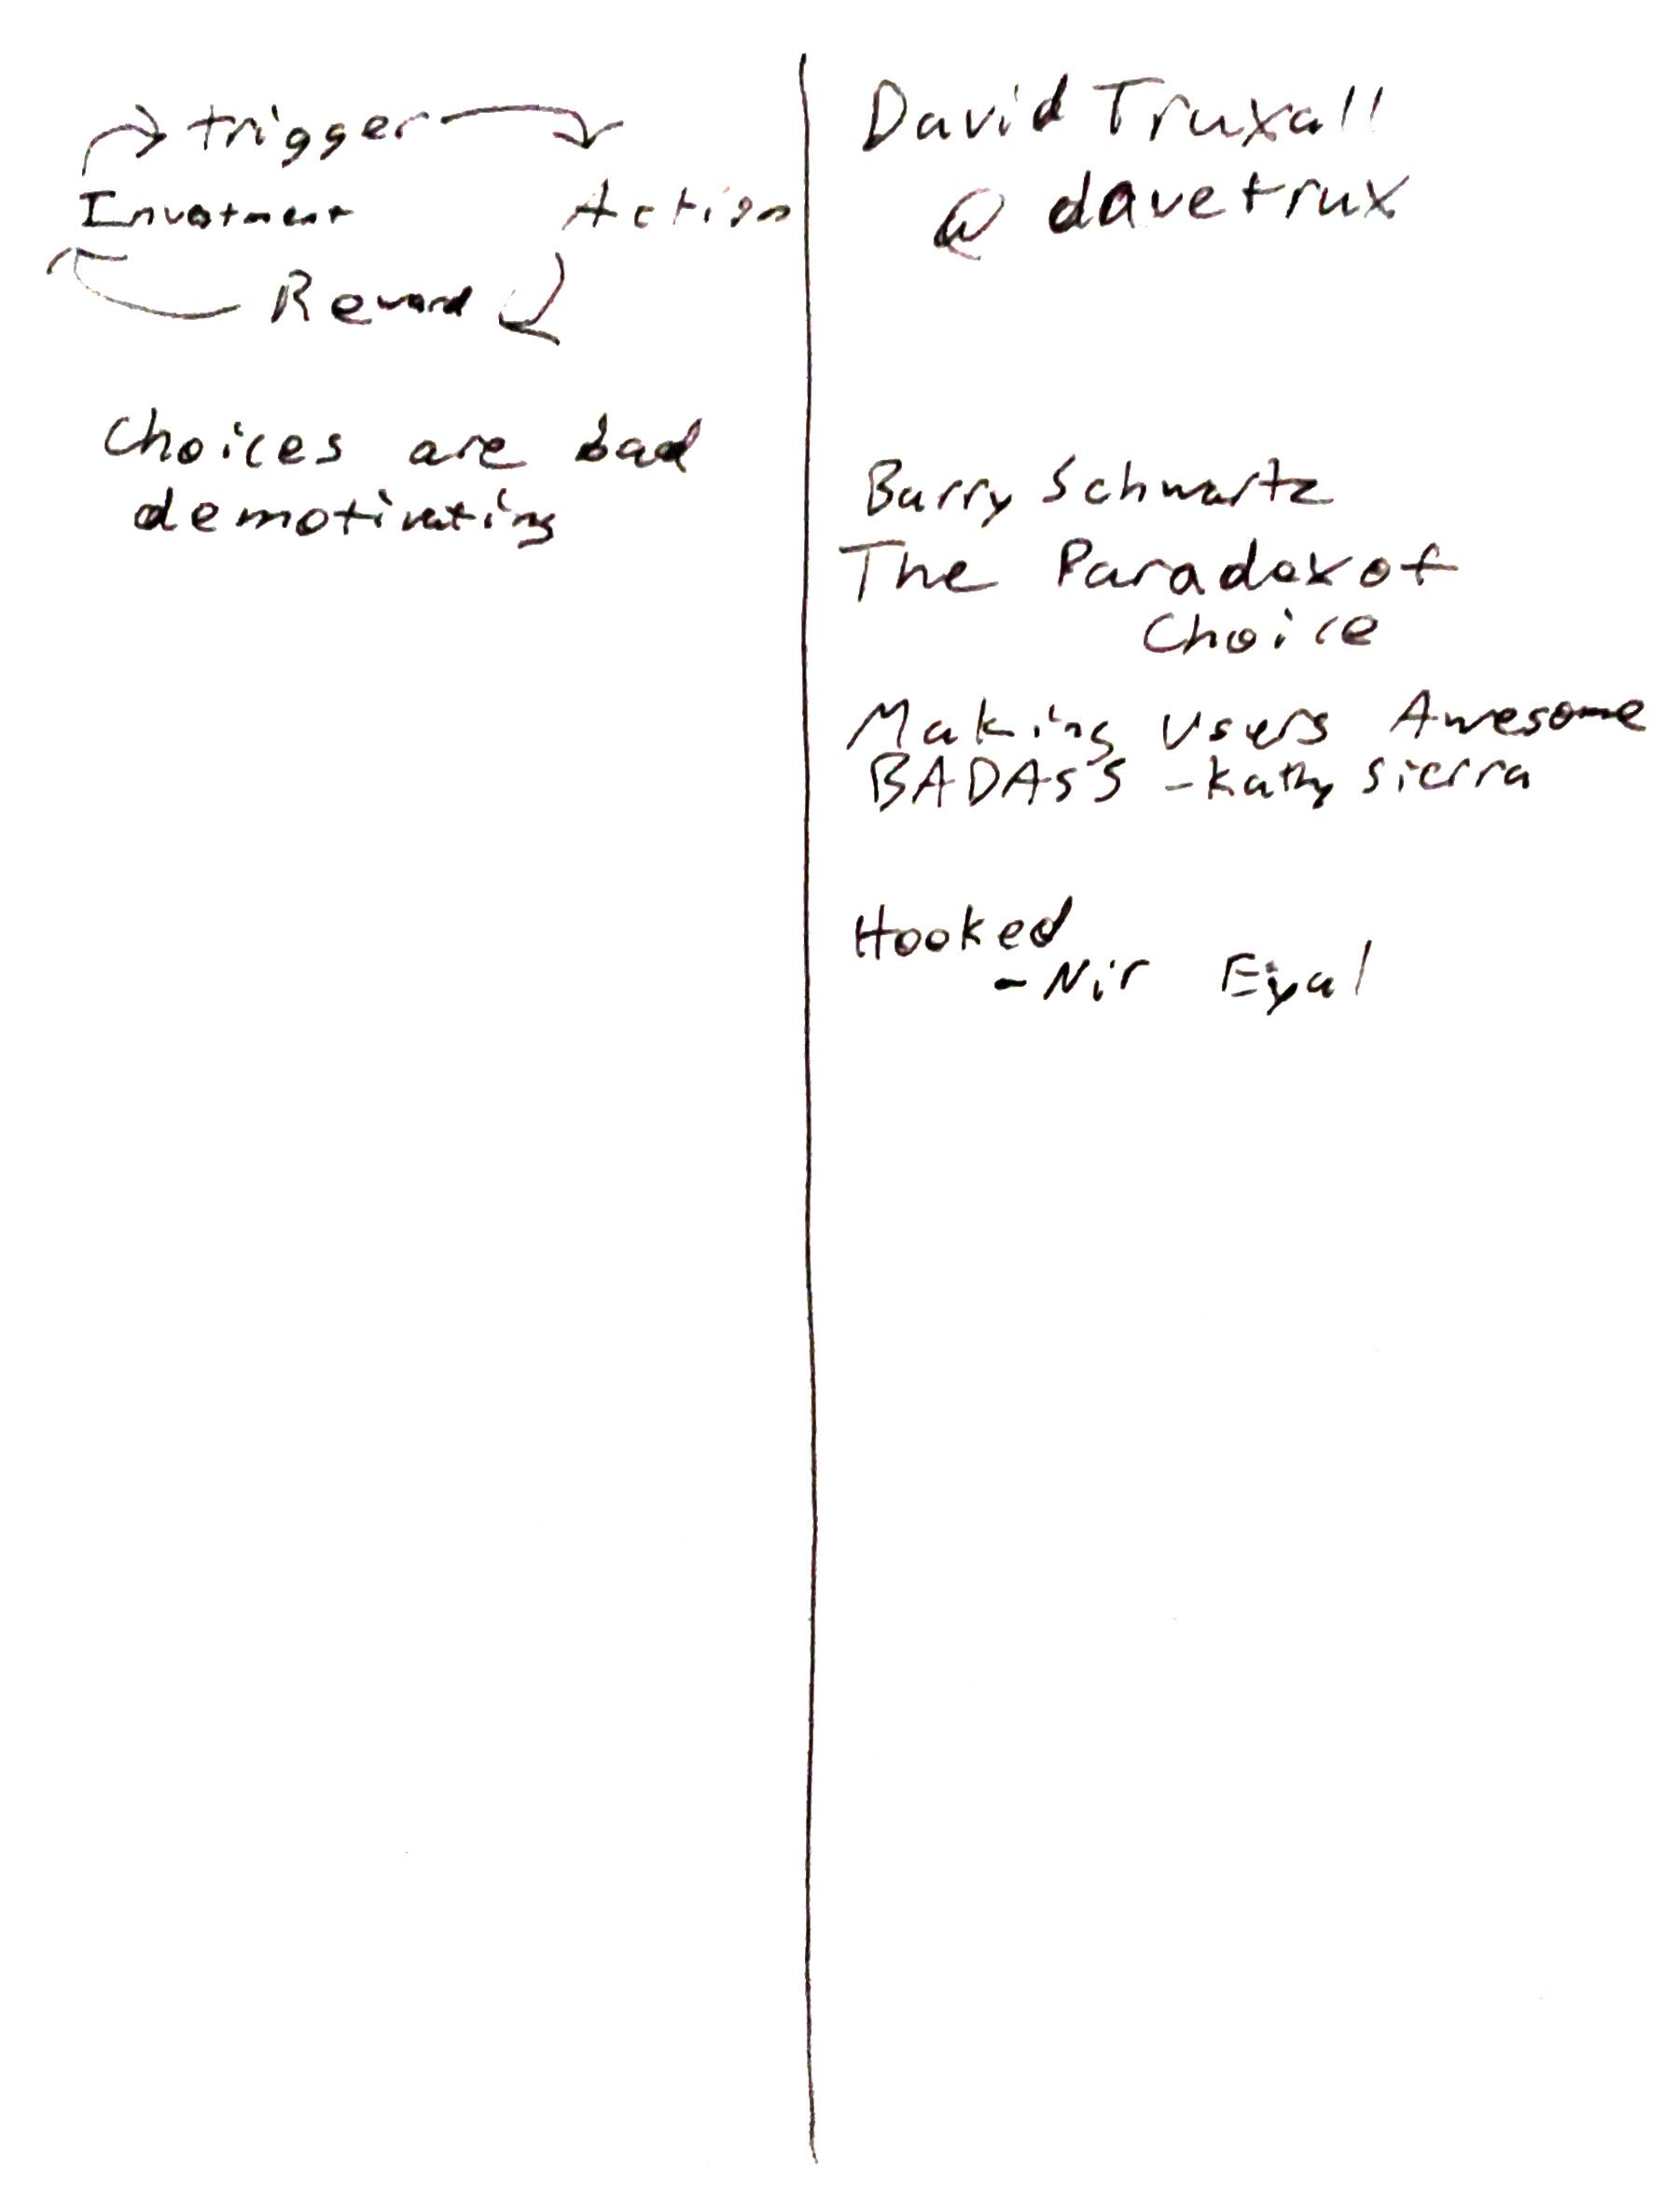 trigger
Investment Action
Reward
Choices are bad
demotivating
David Truxall
@davetrux
Barry Schwartz
The Paradox of
Choice
Making Users Awesome
BADASS - Kathy Sierra
Hooked
- Nir Eyal